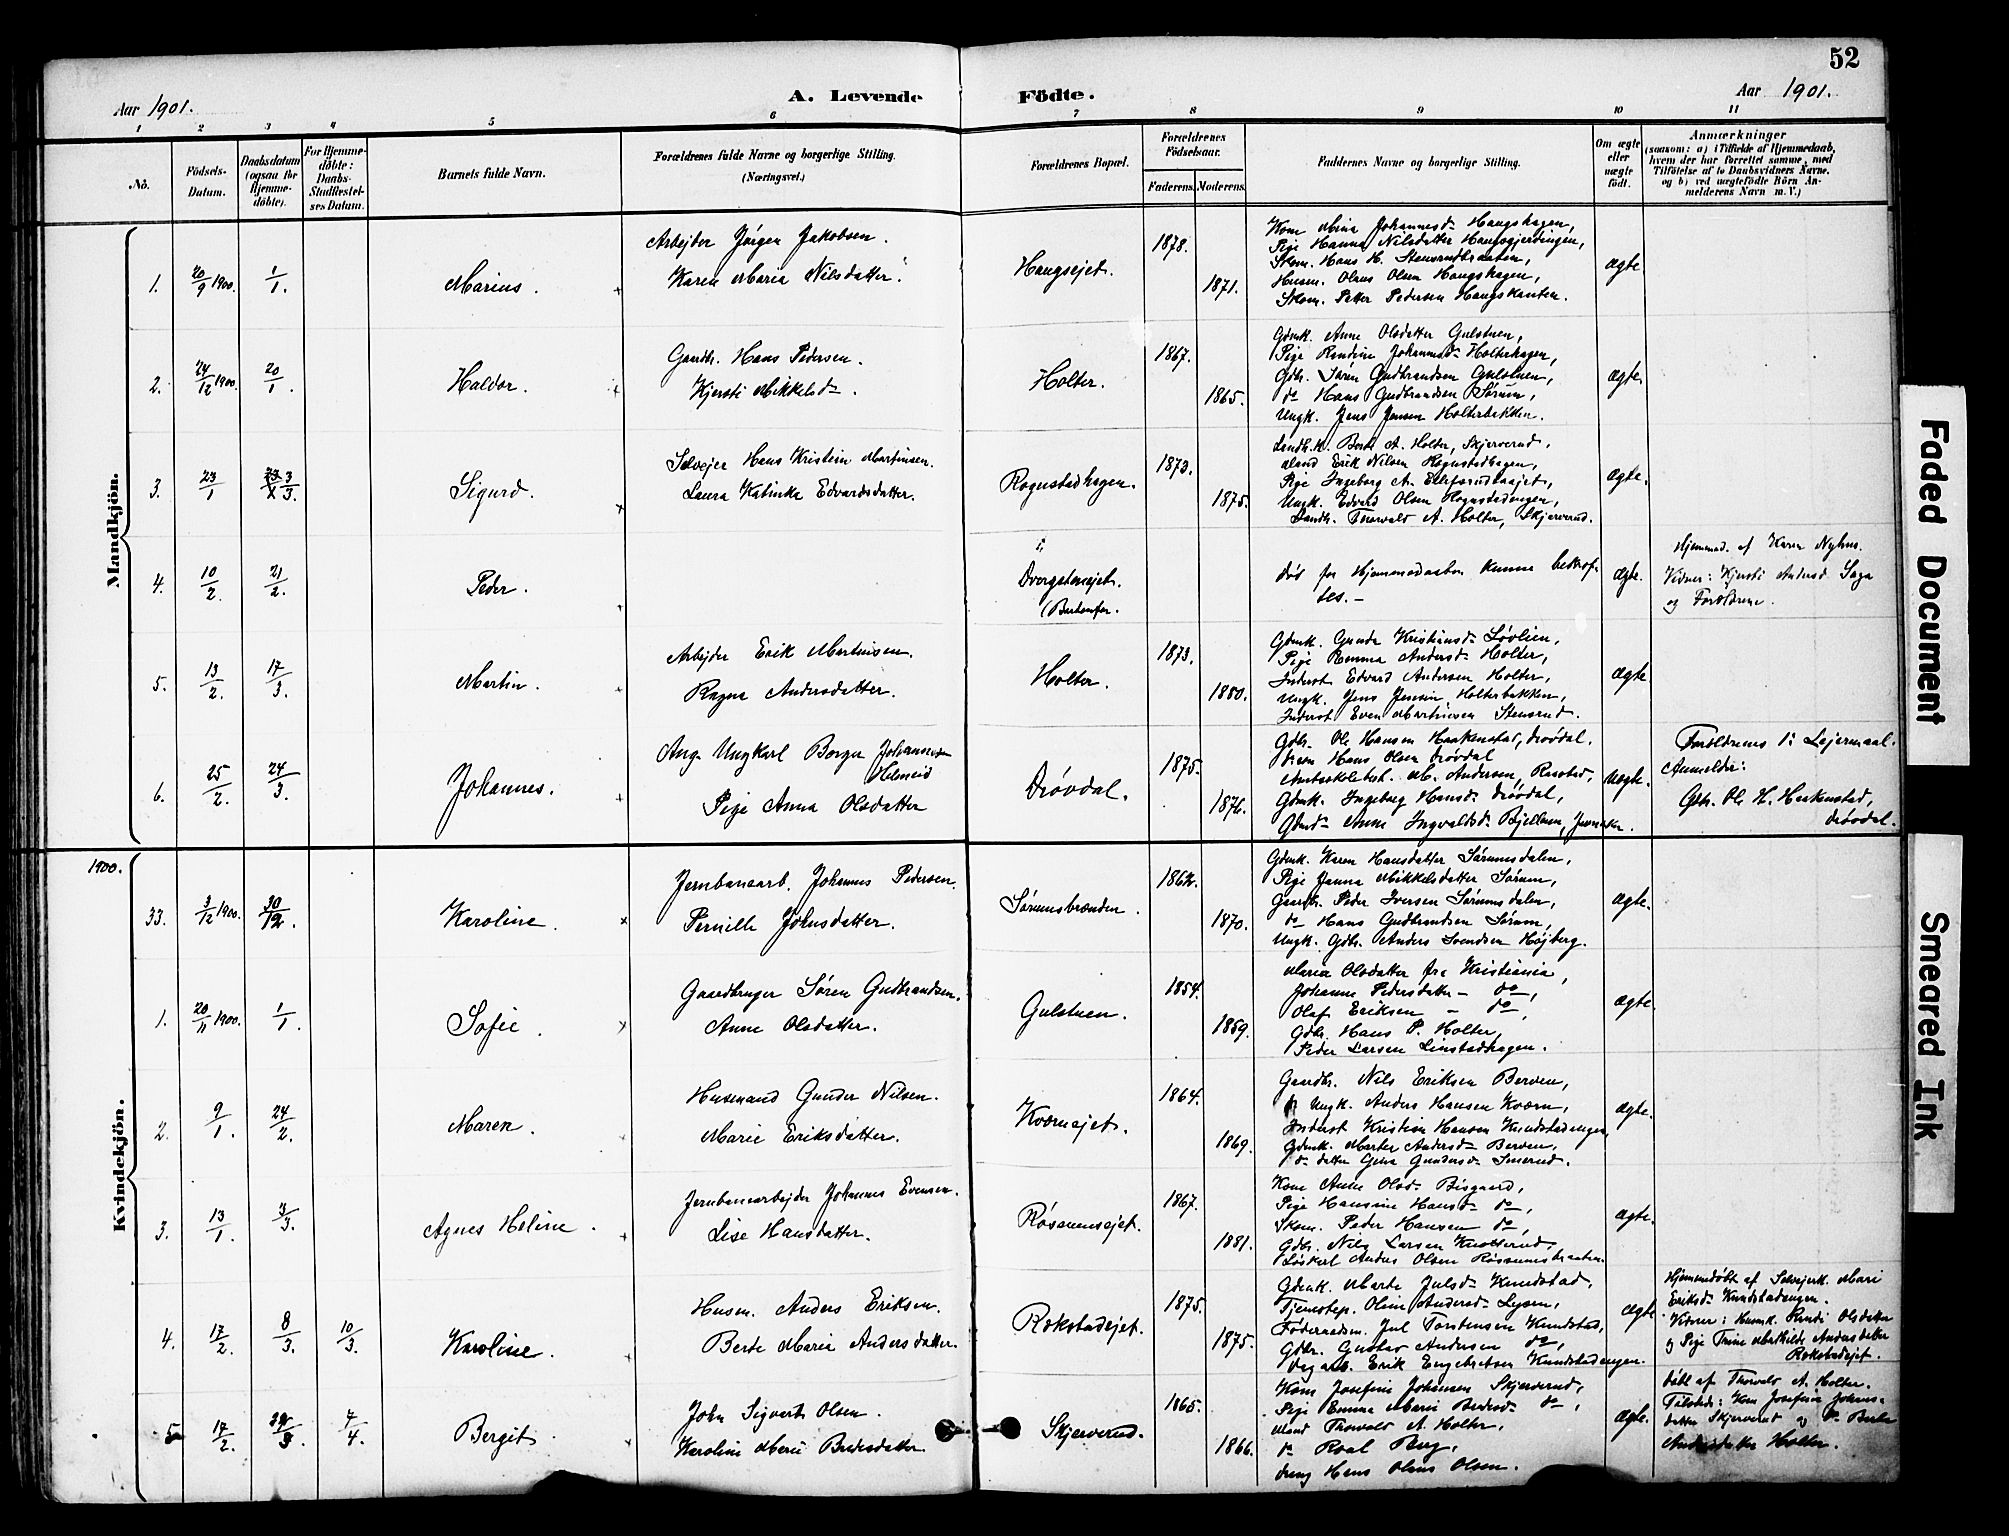 52
Aar 1901.
A. Levende Födte.
Aar 1901.
1 2 3 4 5 6 7 8 9 10 11
No.
Födsels-Datum.
Daabsdatum (ogsaa for Hjemme-döbte).
For Hjemme-döbte: Daabs-Stadfæstel-ses Datum.
Barnets fulde Navn.
Forældrenes fulde Navne og borgerlige Stilling.
(Næringsvei.)
Forældrenes Bopæl.
Forældrenes Födselsaar.
Faderens. Moderens.
Faddernes Navne og borgerlige Stilling.
Om ægte eller uægte födt.
Anmærkninger
(saasom: a) i Tilfælde af Hjemmedaab,
hvem der har forrettet samme, med
Tilföielse af to Daabsvidners Navne,
og b) ved uægtefödte Börn An-
melderens Navn m. V.)
Mandkjön.
1. 20/9 1900. 1/1. Marius.
Arbejder Jörgen Jakobsen.
Karen Maria Nilsdatter.
Haugsejet. 1878. 1871.
Kone Mina Johannesd. Haugshagen,
Pige Hanna Nilsdatter Haugsgjerdingen,
Skom. Hans H. Stensrudbraaten,
Husm. Olaus Olsen Haugshagen,
Skom. Petter Pedersen Haugskanten.
ægte
2. 24/12 1900. 20/1. Haldor.
Gaardbr. Hans Pedersen.
Kjersti Mikkelsd.
Holter. 1867. 1865.
Gdmk. Anne Olsdatter Gulstuen,
Pige Randine Johannesd. Holterhagen,
Gdbr. Sören Gudbrandsen Gulstuen,
do Hans Gudbrandsen Sörum,
Ungk. Jens Jensen Holterbakken.
ægte
3. 23/1 3/3. Sigurd.
Selvejer Hans Kristian Martinsen.
Laura Katinka Edvardsdatter.
Rognstadhagen. 1873. 1875.
Landh.k. Berte A. Holter, Skjerverud,
Mand Erik Nilsen Rognstadhagen,
Ungk. Edvard Olsen Rognstadengen,
Landh. Thorvald A. Holter, Skjerverud.
ægte.
4. 10/2. 21/2. Peder.
Dvergstenejet.
död før Hjemmedaaben kunne bekræf-
tes.
ægte.
Hjemmed. af Karen Nyhus.
Vidner: Kjersti Andersd. Saga
og Forældrene.
5. 13/2. 17/3. Martin.
Arbejder Erik Martinsen.
Ragna Andersdatter.
Holter. 1873. 1880.
Gdmk. Gunda Kristiansd. Lövlien,
Pige Emma Andersd. Holter,
Inderst Edvard Andersen Holter,
Ungk. Jens Jensen Holterbakken,
Inderst Even Martinsen Stensrud.
ægte
6. 25/2. 24/3. Johannes.
Ang. Ungkarl Borger Johannesen
Helmeid
Pige Anna Olsdatter
Drövdal. 1875. 1876.
Gdbr. Ole Hansen Haakenstad, Drövdal.
Hans Olsen Drövdal
M. Andersen, Raastad,
Gdmk. Ingeborg Hansd. Drövdal,
Anne Ingvaldsd. Bjellum, Jevnaker.
Uægte.
Forældrenes 1ste Lejermaal.
Anmelder:
Gbr. Ole H. Haakenstad,
Drövdal.
Kvindekjön.
1900.
33. 3/12 1900. 30/12. Karoline.
Jernbanearb. Johannes Pedersen.
Pernille Johnsdatter.
Sörumsbraaten. 1870.
Gdmk. Karen Hansdatter Sörumsdalen,
Pige Janna Mikkelsdatter Sörum,
Gaardbr. Peder Iversen Sörumsdalen,
do Hans Gudbrandsen Sörum,
Ungk. Gdbr. Anders Svendsen Höjberg.
ægte.
1. 20/11 1900. 1/1. Sofie.
Gaardbruger Sören Gudbrandsen.
Anne Olsdatter.
Gulstuen. 1854. 1859.
Maria Olsdatter fra Kristiania,
Johanne Pedersdatter – do,
Olaf Eriksen – do,
Gdbr. Hans P. Holter,
Peder Larsen Linstadhagen.
ægte.
2. 9/1. 24/2. Maren.
Husmand Gunder Nilsen.
Marie Eriksdatter.
Kværnejet. 1864. 1869.
Gaardbr. Nils Eriksen Berven,
Ungk. Anders Hansen Kværn,
Inderst Kristian Hansen Knudstadengen,
Gdmk. Marte Andersd. Berven,
do datter Gina Gundersd. Smerud.
ægte.
3. 13/1. 3/3. Agnes Heline.
Jernbanearbejder Johannes Evensen.
Lise Hansdatter.
Rösumsejet. 1867. 1881.
Kone Anne Olsd. Bisgaard,
Pige Hansine Hansd. do,
Skom. Peder Hansen do,
Gdbr. Nils Larsen Knatterud,
Löskarl Anders Olsen Rösumsbraaten.
ægte.
4. 17/2. 8/3. 10/3. Karoline.
Husm. Anders Eriksen.
Berte Marie Andersdatter.
Rokstadejet. 1875. 1875.
Gdmk. Marte Julsd. Knudstad,
Tjenestep. Oline Andersd. Lysen,
Föderaadsm. Jul Torstensen Knudstad,
Gdbr. Gustav Andersen do,
Dagarb. Erik Engebretsen Knudstadengen.
ægte
Hjemmedöbt af Selvejerk. Mari
Eriksd. Knudstadengen.
Vidner: Husmk. Randi Olsdatter
og Pige Trine Mathilde Andersdatter
Rokstadejet.
5. 17/2. 7/4. Bergit.
John Sigvart Olsen.
Karoline Marie Bredesdatter
Skjerverud. 1865. 1866.
Kone Josefine Johansen Skjerverud,
Pige Emma Marie Bredesd. do,
Mand Thorvald A. Holter,
do Roal Berg,
dreng Hans Olaus Olsen.
ægte.
Döbt af Thorvald A. Holter.
Tilstede: Kone Josefine Johans-
datter Skjerverud og do Berte
Andersdatter Holter.
Faded Document
Smeared Ink